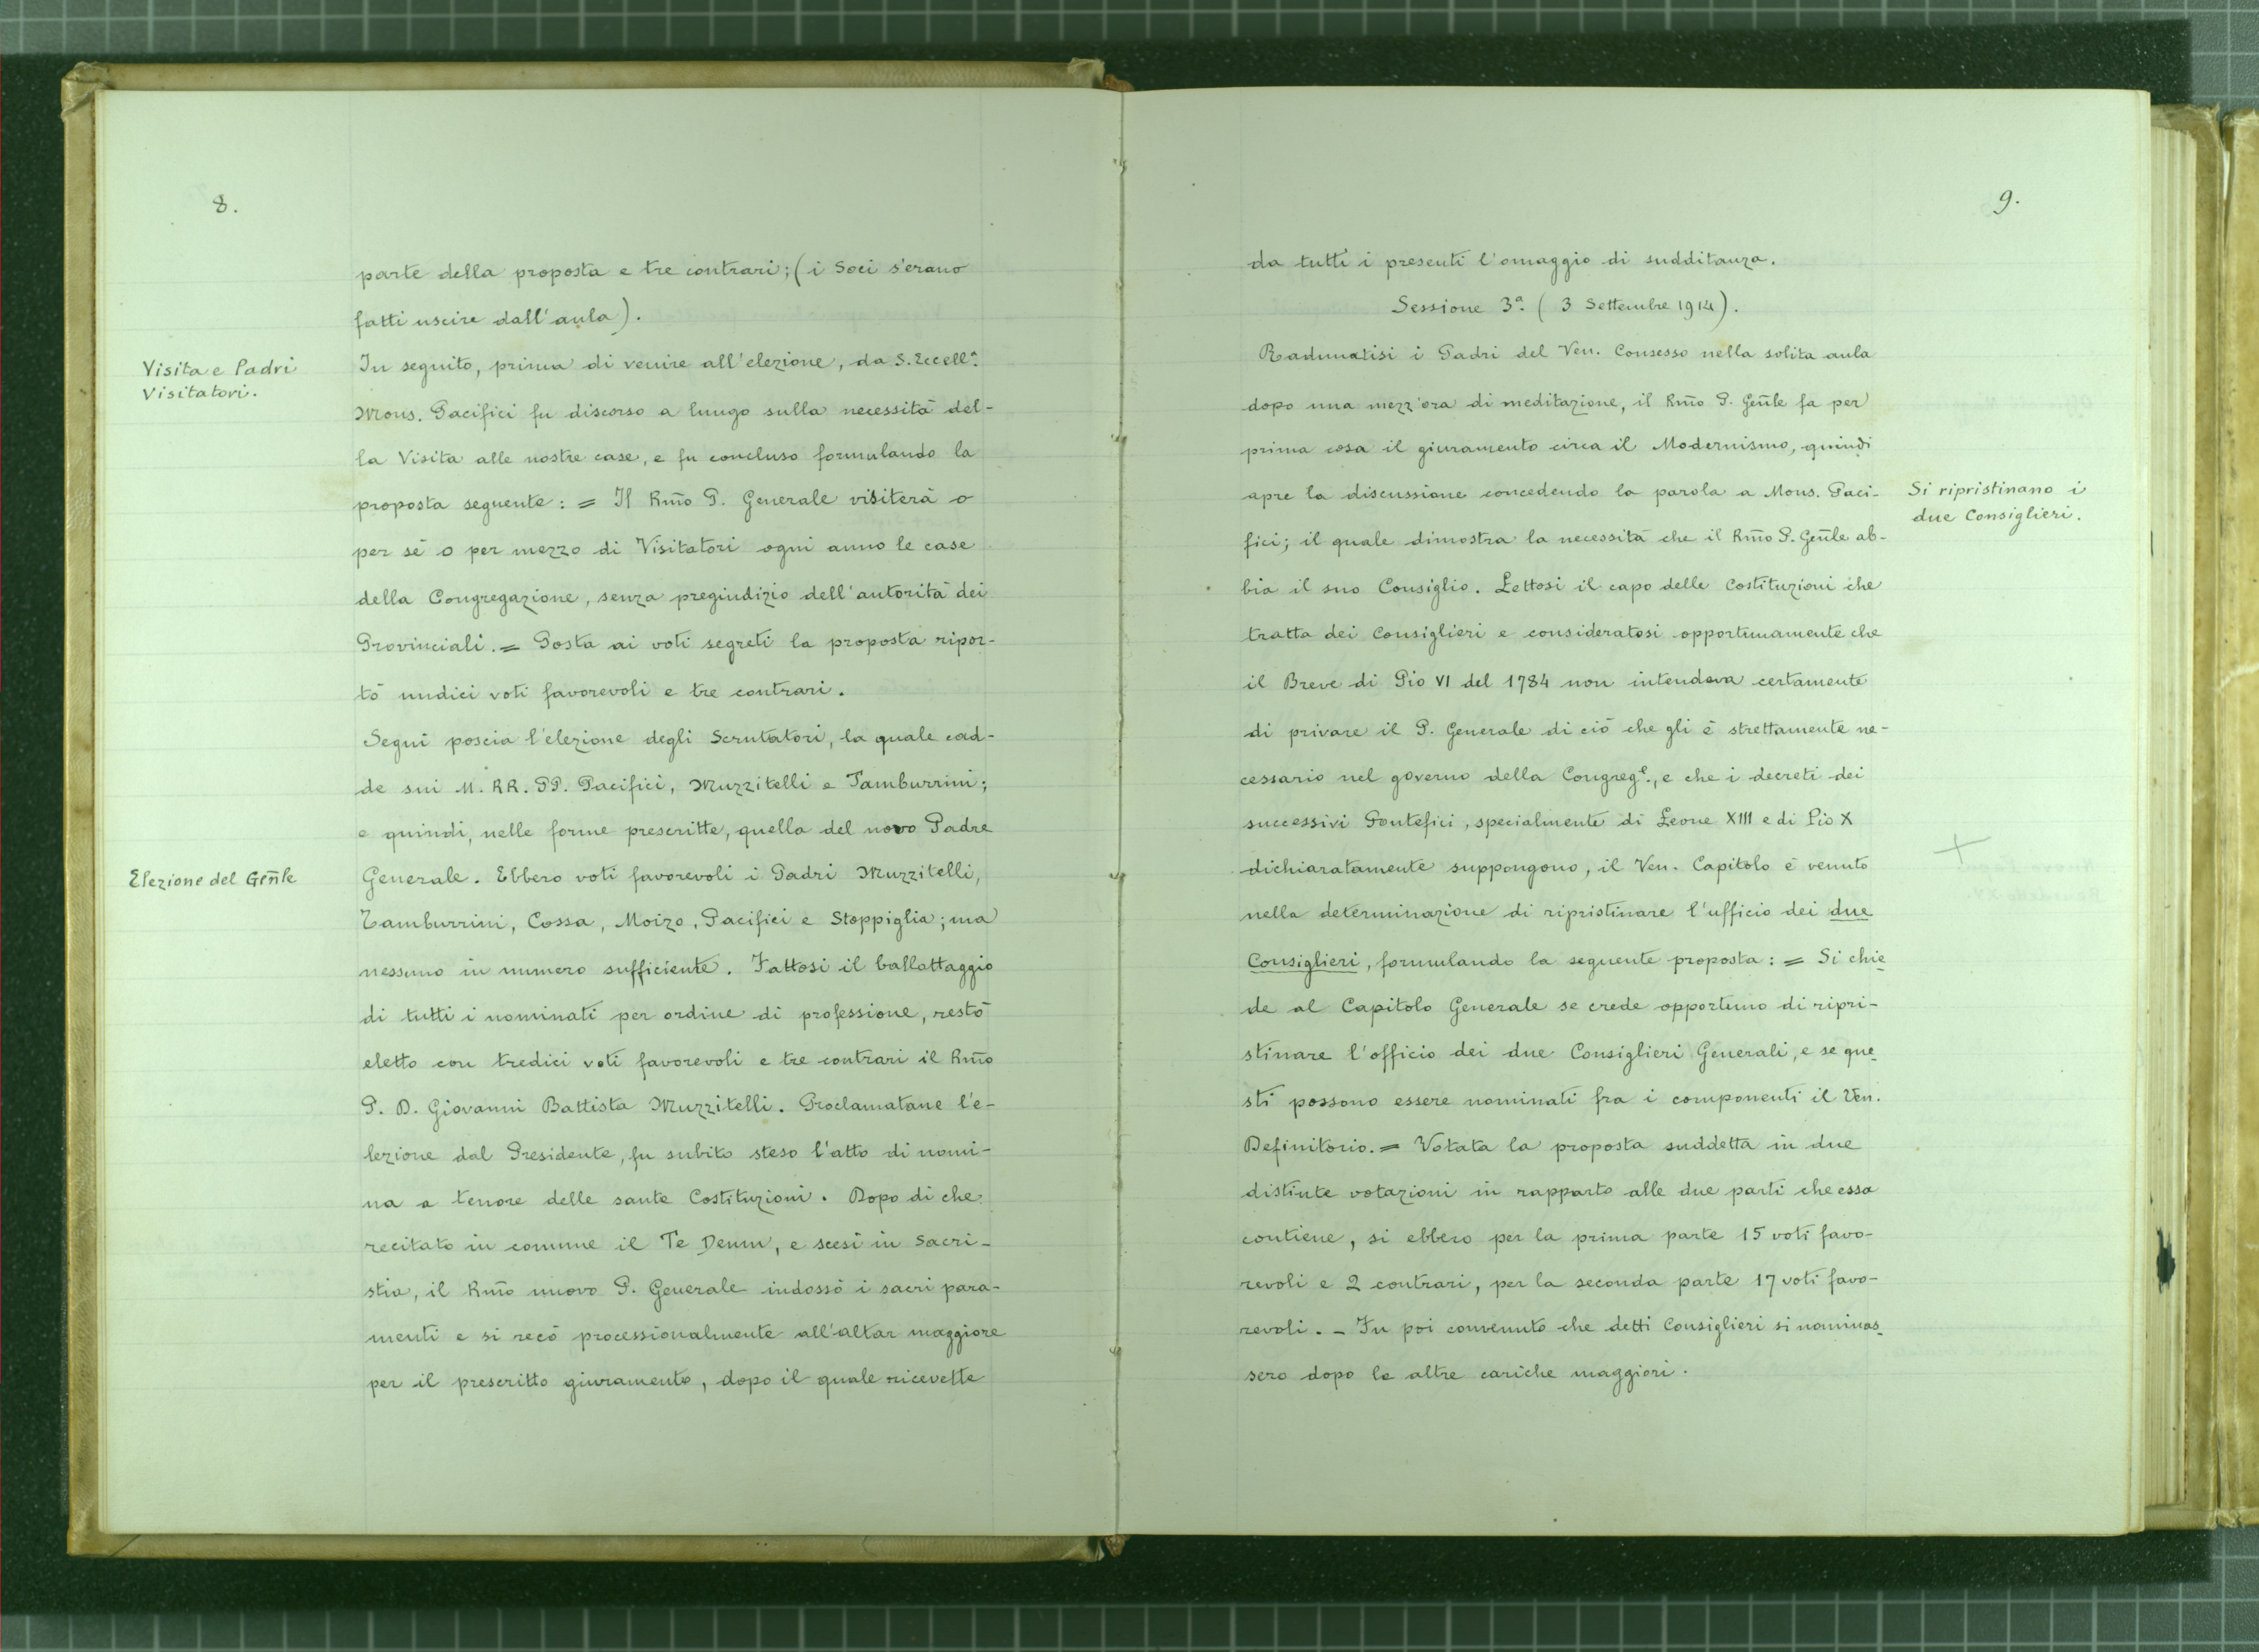 8.
parte della proposta e tre contrari; (i Soci s'erano
fatti uscire dall'aula).
Visita e Padri
Visitatori.
In seguito, prima di venire all'elezione, da S. Eccellª.
Mons. Pacifici fu discorso a lungo sulla necessità del-
la Visita alle nostre case, e fu concluso formulando la
proposta seguente: = Il Rm̃o P. Generale visiterà o
per sè o per mezzo di Visitatori ogni anno le case
della Congregazione, senza pregiudizio dell'autorità dei
Provinciali. = Posta ai voti segreti la proposta ripor-
tò undici voti favorevoli e tre contrari.
Seguì poscia l'elezione degli Scrutatori, la quale cad-
de sui M. RR. PP. Pacifici, Muzzitelli e Tamburrini;
e quindi, nelle forme prescritte, quella del novo Padre
Elezione del Gen̄le
Generale. Ebbero voti favorevoli i Padri Muzzitelli,
Tamburrini, Cossa, Moizo, Pacifici e Stoppiglia; ma
nessuno in numero sufficiente. Fattosi il ballottaggio
di tutti i nominati per ordine di professione, restò
eletto con tredici voti favorevoli e tre contrari il Rm̃o
P. D. Giovanni Battista Muzzitelli. Proclamatane l'e-
lezione dal Presidente, fu subito steso l'atto di nomi-
na a tenore delle sante Costituzioni. Dopo di che
recitato in comune il Te Deum, e scesi in Sacri-
stia, il Rm̃o nuovo P. Generale indossò i sacri para-
menti e si recò processionalmente all'altar maggiore
per il prescritto giuramento, dopo il quale ricevette
9.
da tutti i presenti l'omaggio di sudditanza.
Sessione 3ª. (3 Settembre 1914).
Radunatisi i Padri del Ven. Consesso nella solita aula
dopo una mezz'ora di meditazione, il Rm̃o P. Gen̄le fa per
prima cosa il giuramento circa il Modernismo, quindi
apre la discussione concedendo la parola a Mons. Paci-
Si ripristinano i
due Consiglieri.
fici; il quale dimostra la necessità che il Rm̃o P. Gen̄le ab-
bia il suo Consiglio. Lettosi il capo delle Costituzioni che
tratta dei Consiglieri e consideratosi opportunamente che
il Breve di Pio VI del 1784 non intendeva certamente
di privare il P. Generale di ciò che gli è strettamente ne-
cessario nel governo della Congregᵉ., e che i decreti dei
successivi Pontefici, specialmente di Leone XIII e di Pio X
dichiaratamente suppongono, il Ven. Capitolo è venuto
nella determinazione di ripristinare l'ufficio dei due
Consiglieri, formulando la seguente proposta: = Si chie
de al Capitolo Generale se crede opportuno di ripri-
stinare l'officio dei due Consiglieri Generali, e se que
sti possono essere nominati fra i componenti il Ven.
Definitorio. = Votata la proposta suddetta in due
distinte votazioni in rapporto alle due parti che essa
contiene, si ebbero per la prima parte 15 voti favo-
revoli e 2 contrari, per la seconda parte 17 voti favo-
revoli. - Fu poi convenuto che detti Consiglieri si nominas
sero dopo le altre cariche maggiori.